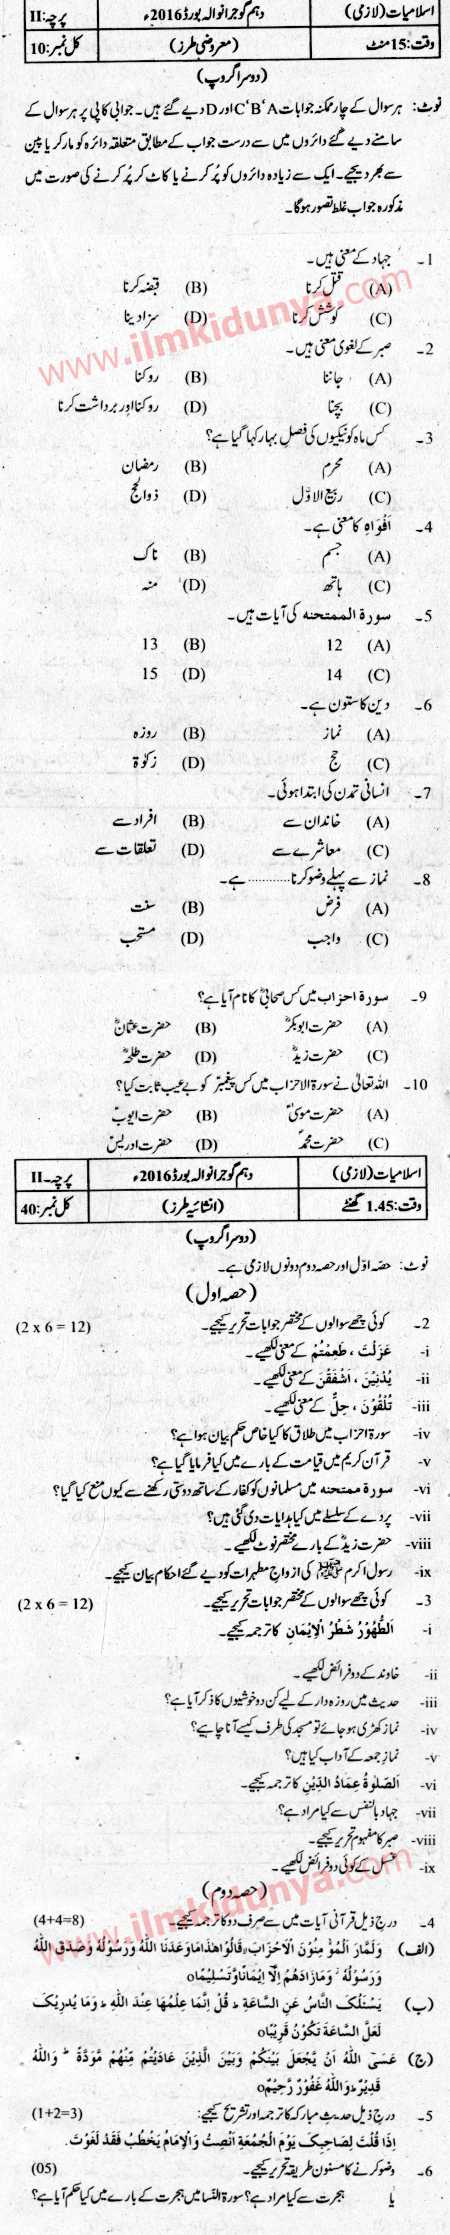 اسلامیات (لازمی) دہم گوجرانوالہ بورڈ 2016ء پرچہ: II
وقت: 15 منٹ (معروضی طرز) کل نمبر: 10
(دوسرا گروپ)
نوٹ: ہر سوال کے چار ممکنہ جوابات C'B'A اور D دیے گئے ہیں۔ جوابی کاپی پر ہر سوال کے
سامنے دیے گئے دائروں میں سے درست جواب کے مطابق متعلقہ دائرہ کو مارکر یا پین
سے بھر دیجیے۔ ایک سے زیادہ دائروں کو پُر کرنے یا کاٹ کر پُر کرنے کی صورت میں
مذکورہ جواب غلط تصور ہوگا۔
1۔ جہاد کے معنی ہیں۔
(A) قتل کرنا (B) قبضہ کرنا
(C) کوشش کرنا (D) سزا دینا
www.ilmkidunya.com
2۔ صبر کے لغوی معنی ہیں۔
(A) جاننا (B) روکنا
(C) بچنا (D) روکنا اور برداشت کرنا
3۔ کس ماہ کو نیکیوں کی فصلِ بہار کہا گیا ہے؟
(A) محرم (B) رمضان
(C) ربیع الاوّل (D) ذوالحج
4۔ اَفْوَاہ کا معنی ہے۔
(A) جسم (B) ناک
(C) ہاتھ (D) منہ
5۔ سورۃ الممتحنہ کی آیات ہیں۔
(A) 12 (B) 13
(C) 14 (D) 15
6۔ دین کا ستون ہے۔
(A) نماز (B) روزہ
(C) حج (D) زکوٰۃ
7۔ انسانی تمدن کی ابتدا ہوئی۔
(A) خاندان سے (B) افراد سے
(C) معاشرے سے (D) تعلقات سے
8۔ نماز سے پہلے وضو کرنا .......... ہے۔
(A) فرض (B) سنت
(C) واجب (D) مستحب
9۔ سورۃ احزاب میں کس صحابیؓ کا نام آیا ہے؟
(A) حضرت ابوبکرؓ (B) حضرت عثمانؓ
(C) حضرت زیدؓ (D) حضرت طلحہؓ
10۔ اللہ تعالیٰ نے سورۃ الاحزاب میں کس پیغمبرؑ کو بے عیب ثابت کیا؟
(A) حضرت موسیٰؑ (B) حضرت ایوبؑ
(C) حضرت محمدؐ (D) حضرت ادریسؑ
اسلامیات (لازمی) دہم گوجرانوالہ بورڈ 2016ء پرچہ۔ II
وقت: 1.45 گھنٹے (انشائیہ طرز) کل نمبر: 40
(دوسرا گروپ)
نوٹ: حصہ اوّل اور حصہ دوم دونوں لازمی ہے۔
(حصہ اول)
2۔ کوئی چھے سوالوں کے مختصر جوابات تحریر کیجیے۔ (2 x 6 = 12)
i- عَزَلْتَ ، طَعِمْتُمْ کے معنی لکھیے۔
ii- یُدْنِیْنَ ، اَشْفَقْنَ کے معنی لکھیے۔
iii- تُلْقُوْنَ ، حِلٌّ کے معنی لکھیے۔
iv- سورۃ احزاب میں طلاق کا کیا خاص حکم بیان ہوا ہے؟
v- قرآن کریم میں قیامت کے بارے میں کیا فرمایا گیا ہے؟
vi- سورۃ ممتحنہ میں مسلمانوں کو کفار کے ساتھ دوستی رکھنے سے کیوں منع کیا گیا؟
vii- پردے کے سلسلے میں کیا ہدایات دی گئی ہیں؟
viii- حضرت زیدؓ کے بارے مختصر نوٹ لکھیے۔
ix- رسول اکرم ﷺ کی ازواجِ مطہرات کو دیے گئے احکام بیان کیجیے۔
3۔ کوئی چھے سوالوں کے مختصر جوابات تحریر کیجیے۔ (2 x 6 = 12)
i- اَلطُّهُوْرُ شَطْرُ الْاِیْمَانِ کا ترجمہ کیجیے۔
ii- خاوند کے دو فرائض لکھیے۔
iii- حدیث میں روزہ دار کے لیے کن دو خوشیوں کا ذکر آیا ہے؟
iv- نماز کھڑی ہو جائے تو مسجد کی طرف کیسے آنا چاہیے؟
v- نمازِ جمعہ کے آداب کیا ہیں؟
vi- اَلصَّلٰوۃُ عِمَادُ الدِّیْنِ کا ترجمہ کیجیے۔
vii- جہاد بالنفس سے کیا مراد ہے؟
viii- صبر کا مفہوم تحریر کیجیے۔
ix- غسل کے کوئی دو فرائض لکھیے۔
www.ilmkidunya.com
(حصہ دوم)
4۔ درج ذیل قرآنی آیات میں سے صرف دو کا ترجمہ کیجیے۔ (4+4=8)
(الف) وَلَمَّارَ الْمُؤْ مِنُوْنَ الْاَحْزَابَ قَالُوْا هٰذَا مَا وَعَدَنَا اللّٰهُ وَرَسُوْلُهٗ وَصَدَقَ اللّٰهُ
وَرَسُوْلُهٗ وَمَا زَادَهُمْ اِلَّا اِیْمَانًا وَّتَسْلِیْمًا٥
(ب) یَسْئَلُکَ النَّاسُ عَنِ السَّاعَةِ ط قُلْ اِنَّمَا عِلْمُهَا عِنْدَ اللّٰهِ ط وَمَا یُدْرِیْکَ
لَعَلَّ السَّاعَةَ تَکُوْنُ قَرِیْبًا٥
(ج) عَسَی اللّٰهُ اَنْ یَّجْعَلَ بَیْنَکُمْ وَبَیْنَ الَّذِیْنَ عَادَیْتُمْ مِنْهُمْ مَّوَدَّةً ط وَاللّٰهُ
قَدِیْرٌ ط وَاللّٰهُ غَفُوْرٌ رَّحِیْمٌ٥
5۔ درج ذیل حدیثِ مبارکہ کا ترجمہ اور تشریح کیجیے: (1+2=3)
اِذَا قُلْتَ لِصَاحِبِکَ یَوْمَ الْجُمُعَةِ اَنْصِتْ وَالْاِمَامُ یَخْطُبُ فَقَدْ لَغَوْتَ۔
6۔ وضو کرنے کا مسنون طریقہ تحریر کیجیے۔ (05)
یا ہجرت سے کیا مراد ہے؟ سورۃ النسا میں ہجرت کے بارے میں کیا حکم آیا ہے؟